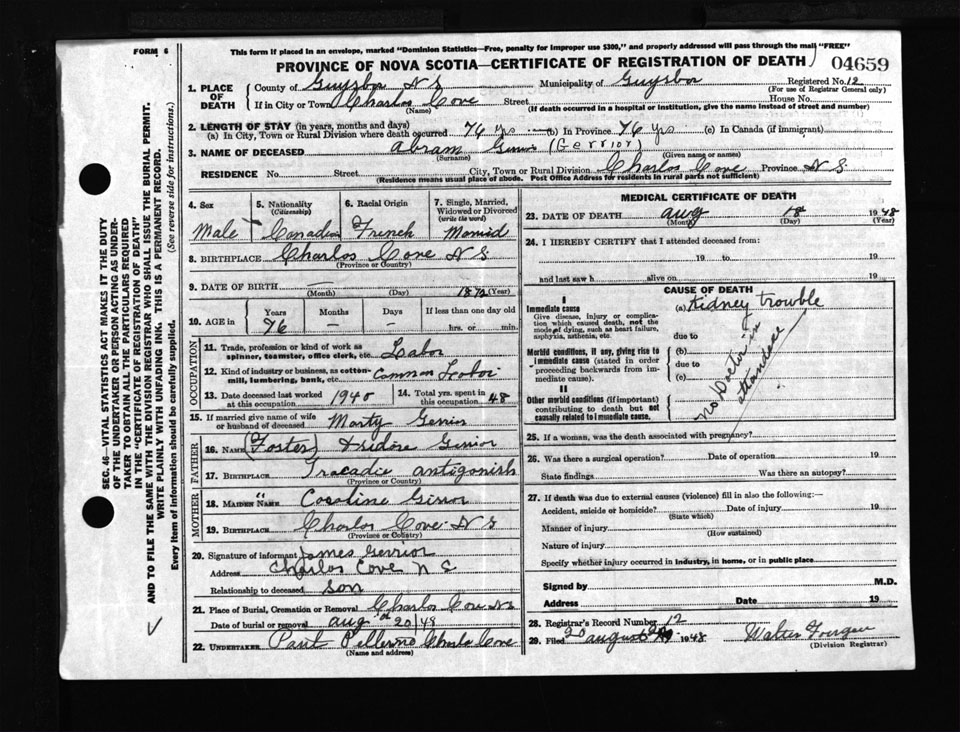 FORM 6
This form if placed in an envelope, marked "Dominion Statistics—Free, penalty for improper use $300," and properly addressed will pass through the mail "FREE"
PROVINCE OF NOVA SCOTIA—CERTIFICATE OF REGISTRATION OF DEATH 04659
1. PLACE OF DEATH
County of Guysboro N S Municipality of Guysbor Registered No. 12
(For use of Registrar General only)
If in City or Town Charlos Cove Street House No.
(Name) (If death occurred in a hospital or institution, give the name instead of street and number)
2. LENGTH OF STAY (in years, months and days)
(a) In City, Town or Rural Division where death occurred 76 yrs (b) In Province 76 yrs (c) In Canada (if immigrant)
3. NAME OF DECEASED Abram Gerrior (Gerrior)
(Surname) (Given name or names)
RESIDENCE No. Street City, Town or Rural Division Charlos Cove Province N S
(Residence means usual place of abode. Post Office Address for residents in rural parts not sufficient)
4. Sex
Male
5. Nationality
(Citizenship)
Canadian
6. Racial Origin
French
7. Single, Married, Widowed or Divorced
(write the word)
Married
8. BIRTHPLACE Charlos Cove N S
(Province or Country)
9. DATE OF BIRTH — 1872
(Month) (Day) (Year)
10. AGE in Years Months Days If less than one day old
76 — — hrs. or min.
OCCUPATION
11. Trade, profession or kind of work as spinner, teamster, office clerk, etc. Labor
12. Kind of industry or business, as cotton-mill, lumbering, bank, etc. Common Labor
13. Date deceased last worked at this occupation 1940 14. Total yrs. spent in this occupation 48
15. If married give name of wife or husband of deceased Marty Gerrior
FATHER
16. NAME (Foster) Isidore Gerrior
17. BIRTHPLACE Tracadie Antigonish
(Province or Country)
MOTHER
18. MAIDEN NAME Caroline Gerrior
19. BIRTHPLACE Charlos Cove N S
(Province or Country)
20. Signature of informant James Gerrior
Address Charlos Cove N S
Relationship to deceased son
21. Place of Burial, Cremation or Removal Charlos Cove N S
Date of burial or removal aug 20/48
22. UNDERTAKER Charlos Cove
(Name and address)
MEDICAL CERTIFICATE OF DEATH
23. DATE OF DEATH aug 18 1948
(Month) (Day) (Year)
24. I HEREBY CERTIFY that I attended deceased from:
19 to 19
and last saw h alive on 19
CAUSE OF DEATH
I
Immediate cause
Give disease, injury or complication which caused death, not the mode of dying, such as heart failure, asphyxia, asthenia, etc.
(a) Kidney trouble
due to
Morbid conditions, if any, giving rise to immediate cause (stated in order proceeding backwards from immediate cause).
(b)
due to
(c)
II
Other morbid conditions (if important) contributing to death but not causally related to immediate cause.
no Doctor in attendace
25. If a woman, was the death associated with pregnancy?
26. Was there a surgical operation? Date of operation 19
State findings Was there an autopsy?
27. If death was due to external causes (violence) fill in also the following:—
Accident, suicide or homicide? Date of injury 19
(State which)
Manner of injury
(How sustained)
Nature of injury
Specify whether injury occurred in industry, in home, or in public place
Signed by M.D.
Address Date 19
28. Registrar's Record Number 12
29. Filed 20 august 1948 Walter
(Division Registrar)
SEC. 46—VITAL STATISTICS ACT MAKES IT THE DUTY
OF THE UNDERTAKER OR PERSON ACTING AS UNDER-
TAKER TO OBTAIN ALL THE PARTICULARS REQUIRED
IN THE "CERTIFICATE OF REGISTRATION OF DEATH"
AND TO FILE THE SAME WITH THE DIVISION REGISTRAR WHO SHALL ISSUE THE BURIAL PERMIT.
WRITE PLAINLY WITH UNFADING INK. THIS IS A PERMANENT RECORD.
Every item of information should be carefully supplied. (See reverse side for instructions.)